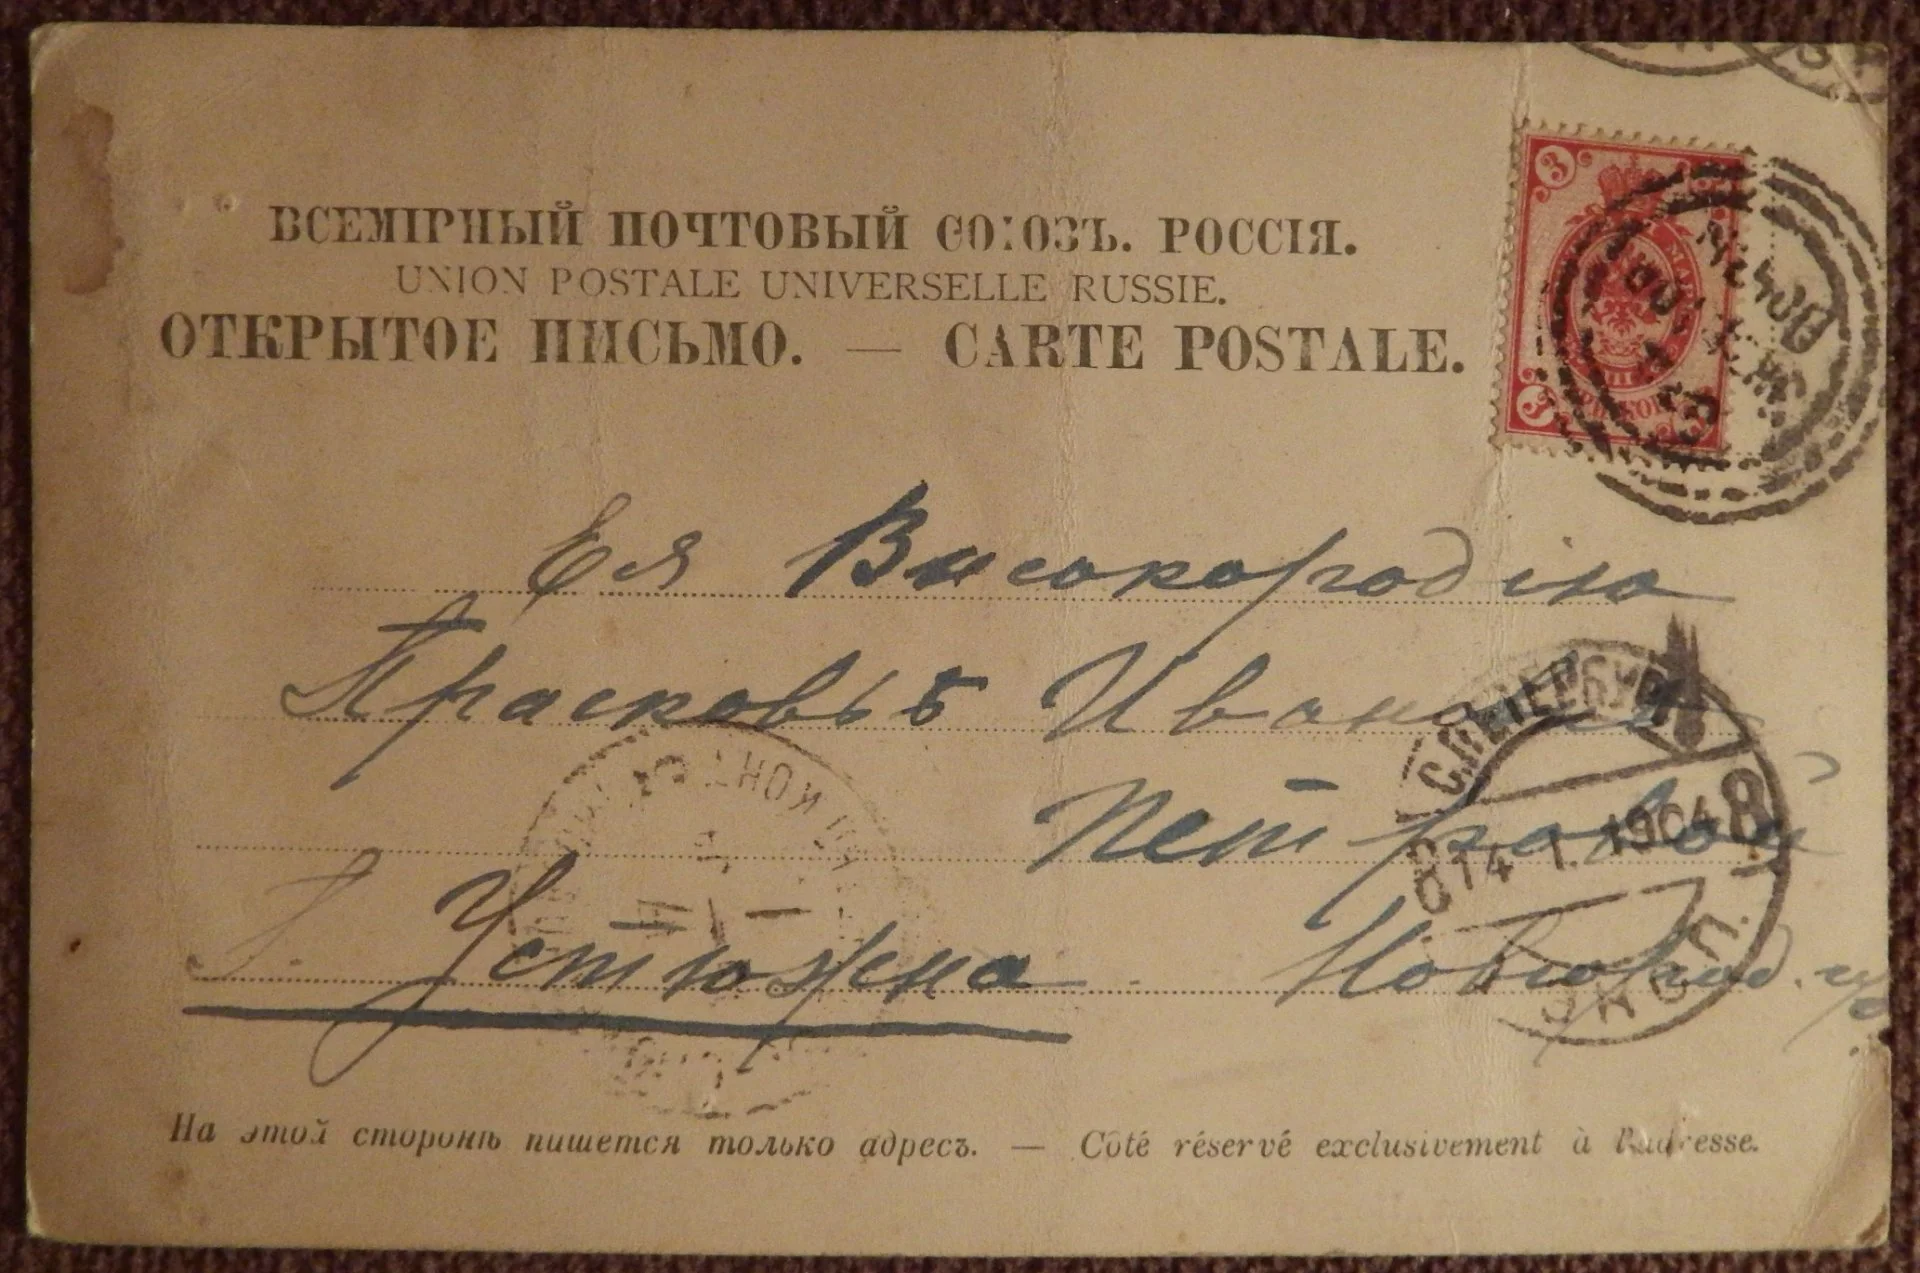 ВСЕМІРНЫЙ ПОЧТОВЫЙ СОЮЗЪ. РОССІЯ.
UNION POSTALE UNIVERSELLE RUSSIE.
ОТКРЫТОЕ ПИСЬМО. — CARTE POSTALE.
3
3
МАРКА
Ея Высокородію
Прасковьѣ Ивановнѣ
С.ПЕТЕРБУРГЪ
Петровой
8 14 1. 1904 8
Г. Устюжна Новгород. губ
ЭКСП.
На этой сторонѣ пишется только адресъ. — Côté réservé exclusivement à l'adresse.